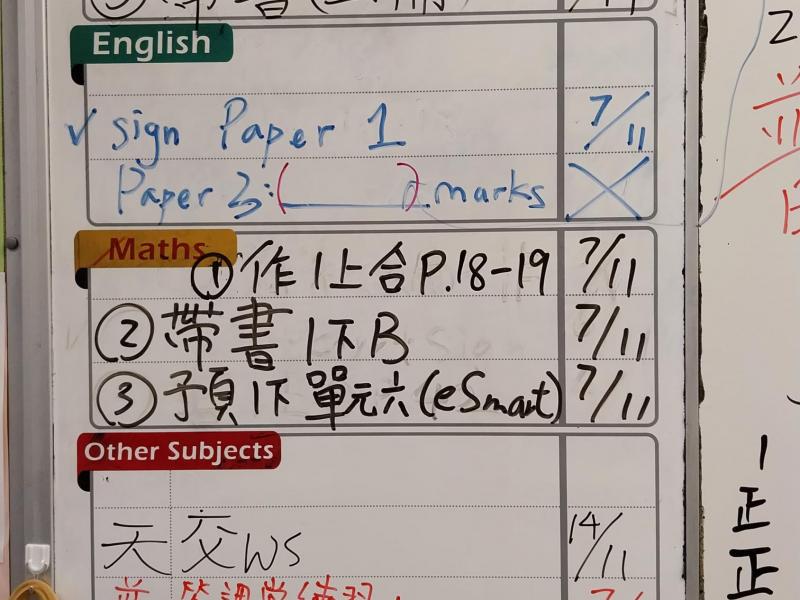 English
✓ sign Paper 1 7/11
Paper 3: ( ) marks
Maths
① 作 1上合 P.18-19 7/11
② 帶書 1下B 7/11
③ 預 1下 單元六 (eSmart) 7/11
Other Subjects
天 交 WS 14/11
1
正
正